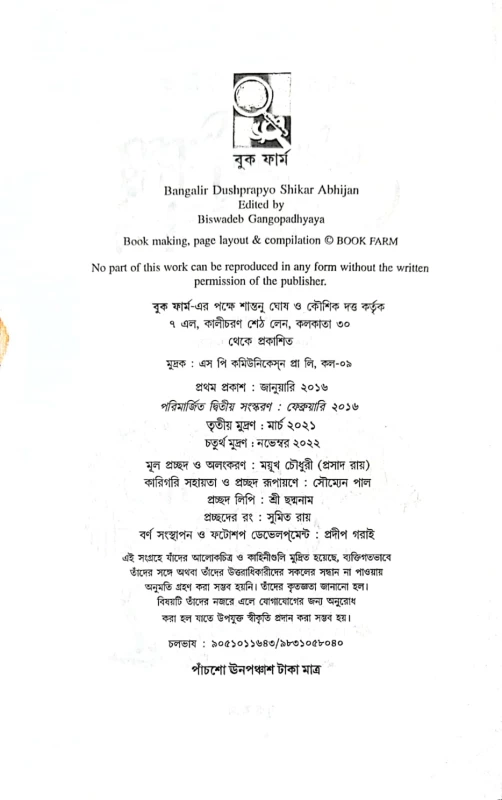 বুক ফার্ম
Bangalir Dushprapyo Shikar Abhijan
Edited by
Biswadeb Gangopadhyaya
Book making, page layout & compilation © BOOK FARM
No part of this work can be reproduced in any form without the written
permission of the publisher.
বুক ফার্ম-এর পক্ষে শান্তনু ঘোষ ও কৌশিক দত্ত কর্তৃক
৭ এল, কালীচরণ শেঠ লেন, কলকাতা ৩০
থেকে প্রকাশিত
মুদ্রক : এস পি কমিউনিকেসন্স প্রা লি, কল-০৯
প্রথম প্রকাশ : জানুয়ারি ২০১৬
পরিমার্জিত দ্বিতীয় সংস্করণ : ফেব্রুয়ারি ২০১৬
তৃতীয় মুদ্রণ : মার্চ ২০২১
চতুর্থ মুদ্রণ : নভেম্বর ২০২২
মূল প্রচ্ছদ ও অলংকরণ : ময়ূখ চৌধুরী (প্রসাদ রায়)
কারিগরি সহায়তা ও প্রচ্ছদ রূপায়ণে : সৌম্যেন পাল
প্রচ্ছদ লিপি : শ্রী ছদ্মনাম
প্রচ্ছদের রং : সুমিত রায়
বর্ণ সংস্থাপন ও ফটোশপ ডেভেলপ্‌মেন্ট : প্রদীপ গরাই
এই সংগ্রহে যাঁদের আলোকচিত্র ও কাহিনীগুলি মুদ্রিত হয়েছে, ব্যক্তিগতভাবে
তাঁদের সঙ্গে অথবা তাঁদের উত্তরাধিকারীদের সকলের সন্ধান না পাওয়ায়
অনুমতি গ্রহণ করা সম্ভব হয়নি। তাঁদের কৃতজ্ঞতা জানানো হল।
বিষয়টি তাঁদের নজরে এলে যোগাযোগের জন্য অনুরোধ
করা হল যাতে উপযুক্ত স্বীকৃতি প্রদান করা সম্ভব হয়।
চলভাষ : ৯০৫১০১১৬৪৩/৯৮৩১০৫৮০৪০
পাঁচশো ঊনপঞ্চাশ টাকা মাত্র